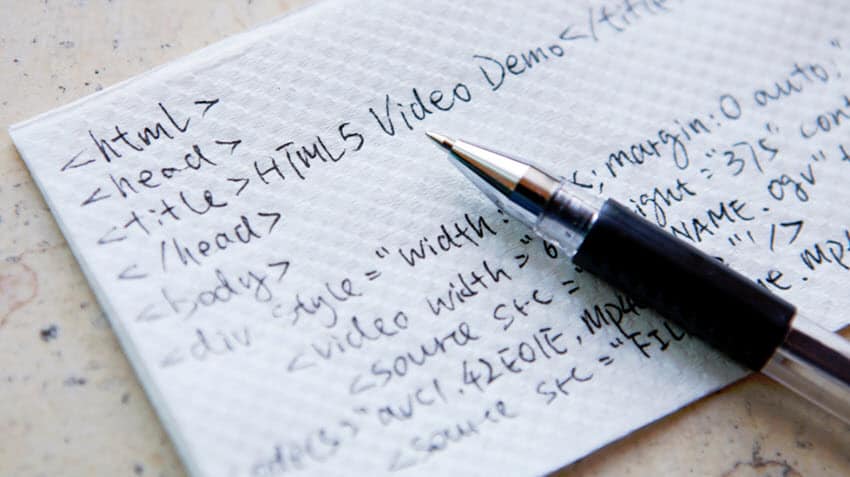 <html>
<head>
<title>HTML5 Video Demo</title
</head>
<body>
<div style="width: ; margin:0 auto;"
<video width="6 ight="375" cont
<source src=" NAME.ogv"
"'/>
odecs="avc1.42E01E, mp4
<source src="FIL me.mp4